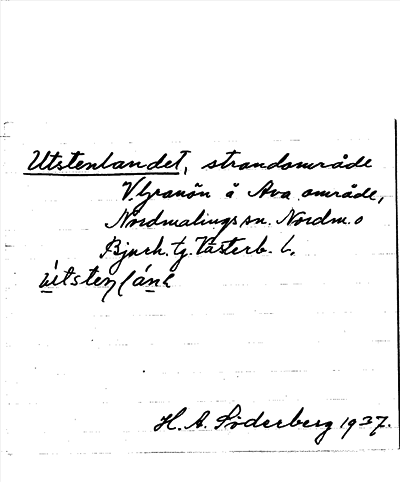 Utstenlandet, strandområde
V. Granön å Ava område,
Nordmalings sn. Nordm. o
Bjurh. tj. Västerb. L.
H. A. Söderberg 1937.